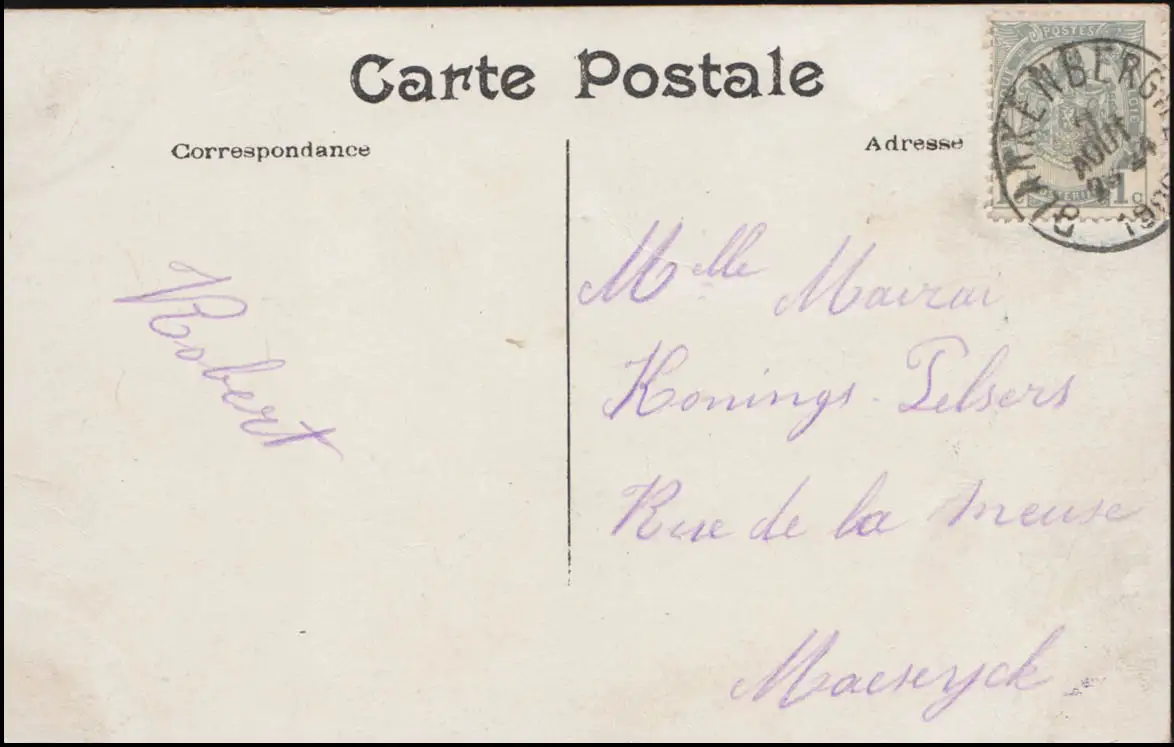 Carte Postale
Correspondance
Adresse
POSTES
1 c
BLANKENBERGHE
7
AOUT
Robert
Mlle
Konings-Pelsers
Rue de la Meuse
Maeseyck